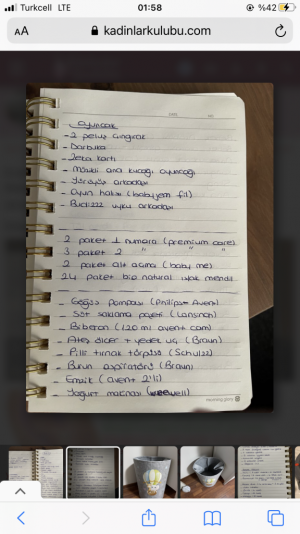 Turkcell LTE 01:58 %42
AA kadinlarkulubu.com
DATE
- oyuncak
- 2 peluş çıngırak
- Darbuka
- Zeka kartı
- ana kucağı oyuncağı
- Yürüyüş arkadaşı
- Oyun halısı (babyjem fil)
- uyku arkadaşı
2 paket 1 numara (premium care)
3 paket 2 " " "
2 paket alt açma (baby me)
24 paket bio natural ıslak mendil
- Göğüs pompası (Philips Avent)
- Süt saklama poşeti (Lansinoh)
- Biberon (120 ml avent cam)
- Ateş ölçer + yedek uç (Braun)
- Pilli tırnak törpüsü
- Burun aspiratörü (Braun)
- Emzik (avent 2'li)
- Yoğurt makinası (weewell)
morning glory